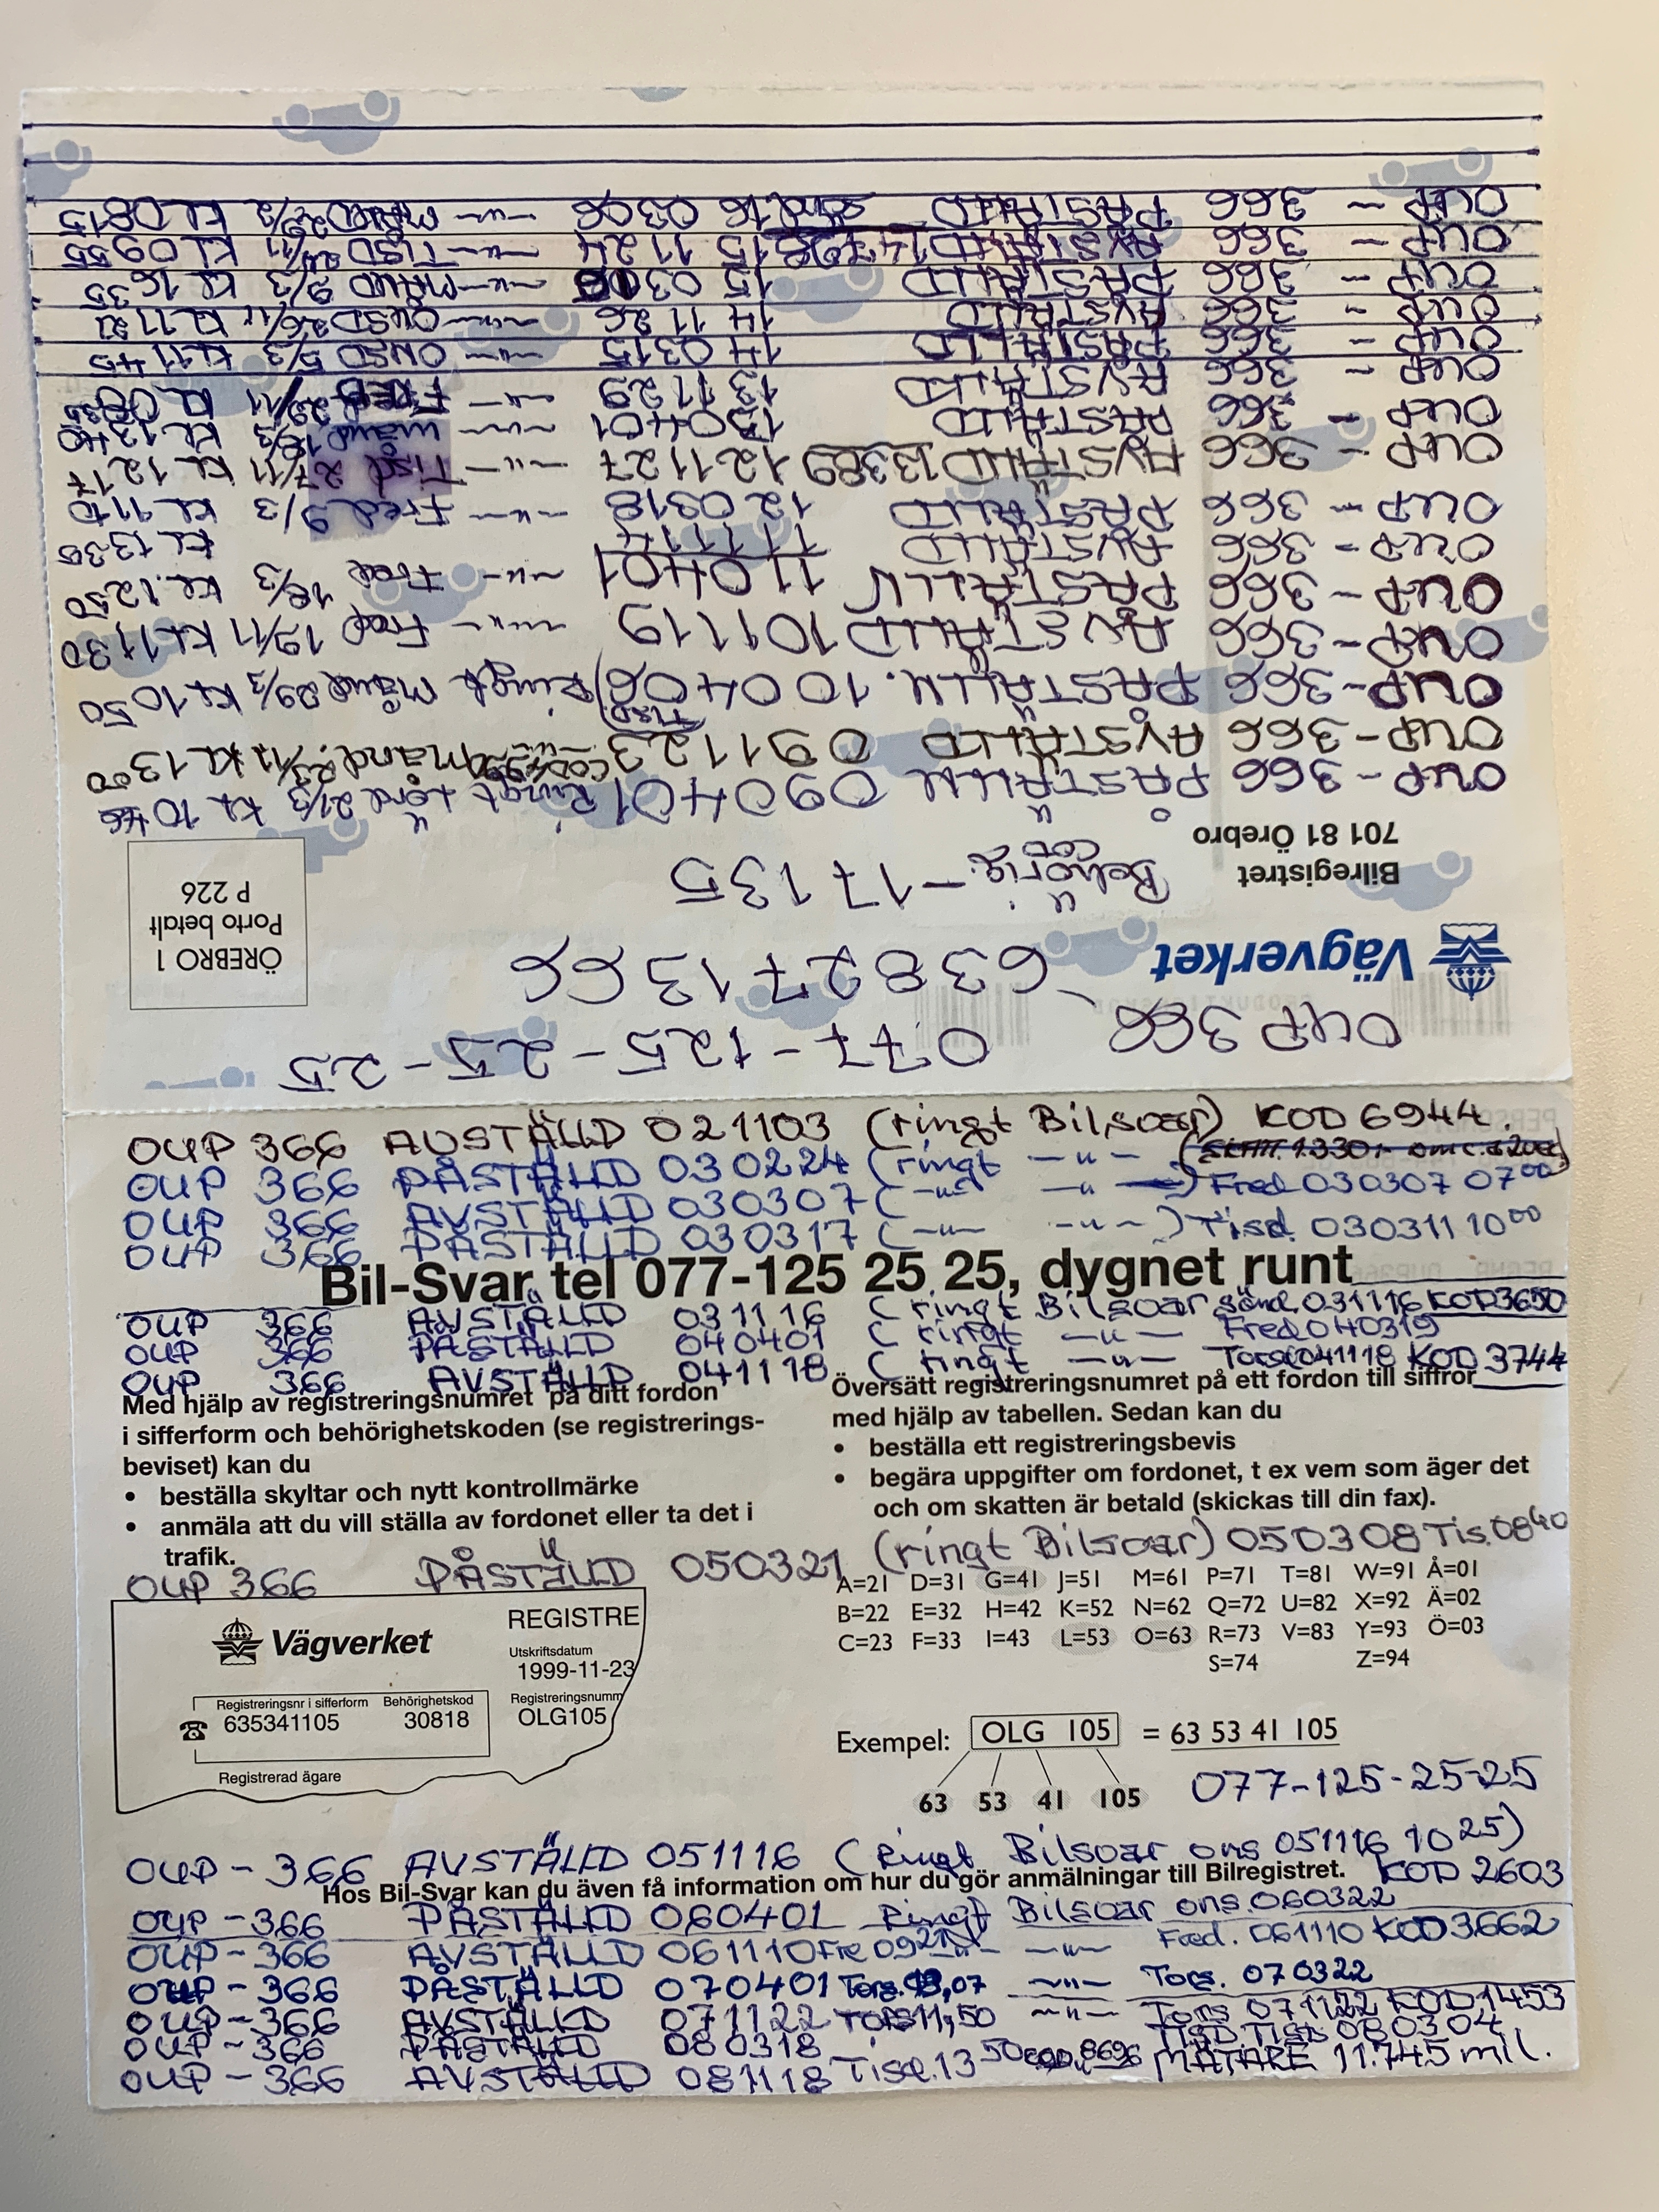 OUP 366 AVSTÄLLD 021103 (ringt Bilsvar) KOD 6944.
OUP 366 PÅSTÄLLD 030224 (ringt —"—
OUP 366 AVSTÄLLD 030307 (—"— —"—) Fred 030307 0700
OUP 366 PÅSTÄLLD 030317 (—"— —"—) Tisd. 030311 1000
Bil-Svar, tel 077-125 25 25, dygnet runt
OUP 366 AVSTÄLLD 031116 (ringt Bilsvar sönd. 031116 KOD 3650
OUP 366 PÅSTÄLLD 040401 (ringt —"— Fred 040319
OUP 366 AVSTÄLLD 041118 (ringt —"— Torsd 041118 KOD 3744
Med hjälp av registreringsnumret på ditt fordon
i sifferform och behörighetskoden (se registrerings-
beviset) kan du
• beställa skyltar och nytt kontrollmärke
• anmäla att du vill ställa av fordonet eller ta det i
trafik.
Översätt registreringsnumret på ett fordon till siffror
med hjälp av tabellen. Sedan kan du
• beställa ett registreringsbevis
• begära uppgifter om fordonet, t ex vem som äger det
och om skatten är betald (skickas till din fax).
OUP 366 PÅSTÄLLD 050321 (ringt Bilsvar) 050308 Tis. 0840
A=21 D=31 G=41 J=51 M=61 P=71 T=81 W=91 Å=01
B=22 E=32 H=42 K=52 N=62 Q=72 U=82 X=92 Ä=02
C=23 F=33 I=43 L=53 O=63 R=73 V=83 Y=93 Ö=03
S=74 Z=94
Vägverket
REGISTRE
Utskriftsdatum
1999-11-23
Registreringsnr i sifferform Behörighetskod
635341105 30818
Registreringsnumm
OLG105
Registrerad ägare
Exempel: OLG 105 = 63 53 41 105
63 53 41 105
077-125-25-25
OUP-366 AVSTÄLLD 051116 (Ringt Bilsvar ons 051116 1025)
KOD 2603
Hos Bil-Svar kan du även få information om hur du gör anmälningar till Bilregistret.
OUP-366 PÅSTÄLLD 060401 Ringt Bilsvar ons. 060322
OUP-366 AVSTÄLLD 061110 Fre —"— —"— Fred. 061110 KOD 3662
OUP-366 PÅSTÄLLD 070401 Tors. —"— Tors. 070322
OUP-366 AVSTÄLLD 071122 TORS 11,50 —"— Tors 071122 KOD 1453
OUP-366 PÅSTÄLLD 080318 080304
OUP-366 AVSTÄLLD 081118 Tisd. 1350 8696 MÄTARE 11.745 mil.
OUP 366 077-125-25-25
638271366
Vägverket
Behörig. - 17135
ÖREBRO 1
Porto betalt
P 226
Bilregistret
701 81 Örebro
OUP-366 PÅSTÄLLN 090401 Ringt Lörd 21/3 KL 10
OUP-366 AVSTÄLLD 091123 Månd. 23/11 KL 1300
OUP-366 PÅSTÄLLN. 100406 (Tisd) Ringt Månd 29/3 KL 1050
OUP-366 AVSTÄLLD 101119 —"— Fred 19/11 KL 1130
OUP-366 PÅSTÄLLN 110401 —"— Fred 18/3 KL. 1250
OUP-366 AVSTÄLLD 111114 KL 1335
OUP-366 PÅSTÄLLD 120318 —"— Fred 9/3 KL 1110
OUP-366 AVSTÄLLD 13389 121127 —"— Tisd 27/11 KL 1217
OUP-366 PÅSTÄLLD 130401 —"— Månd 18/3 KL 1340
OUP-366 AVSTÄLLD 131129 —"— FRED 29/11 KL
OUP-366 PÅSTÄLLD 140315 —"— ONSD 5/3 KL 1145
OUP-366 AVSTÄLLD 141126 —"— ONSD 26/11 KL 1121
OUP-366 PÅSTÄLLD 15 03 —"— MÅND 9/3 KL 1635
OUP-366 AVSTÄLLD 151124 —"— TISD 24/11 KL 0955
OUP-366 PÅSTÄLLD 16 0306 —"— MÅND 29/2 KL 0815